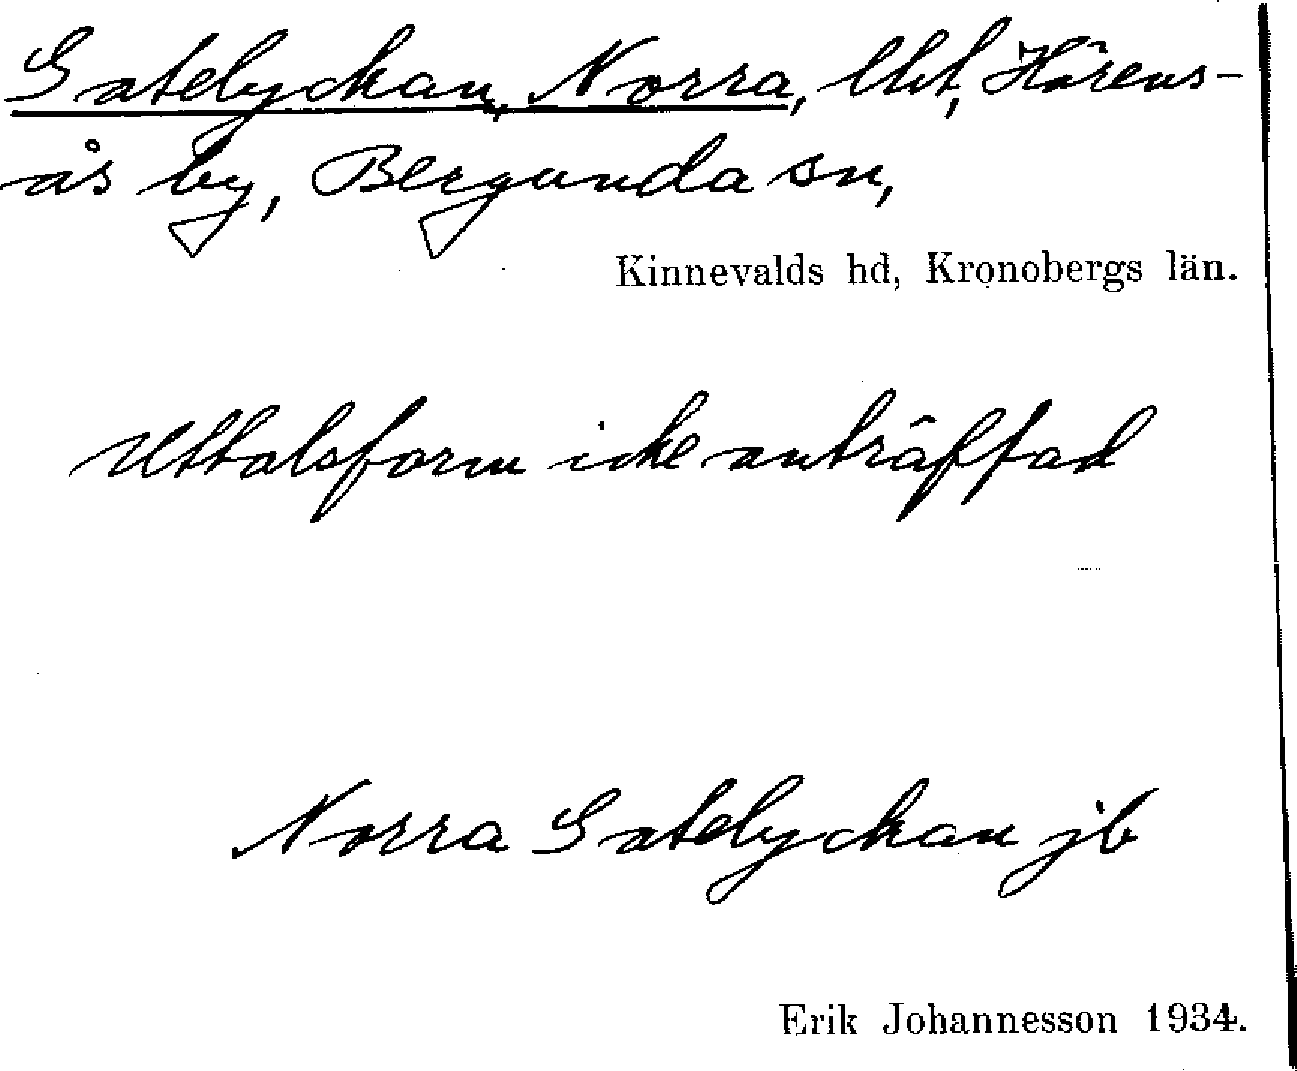 Gatelyckan, Norra, lht, Härens-
ås by, Bergunda sn,
Kinnevalds hd, Kronobergs län.
Uttalsform icke anträffad
Norra Gatelyckan jb
Erik Johannesson 1934.